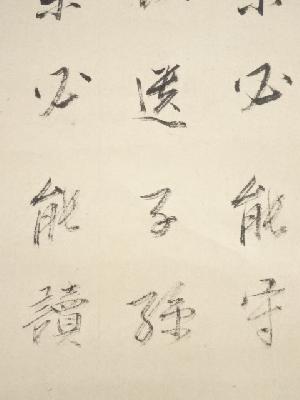 必能守
遺子孫
必能讀